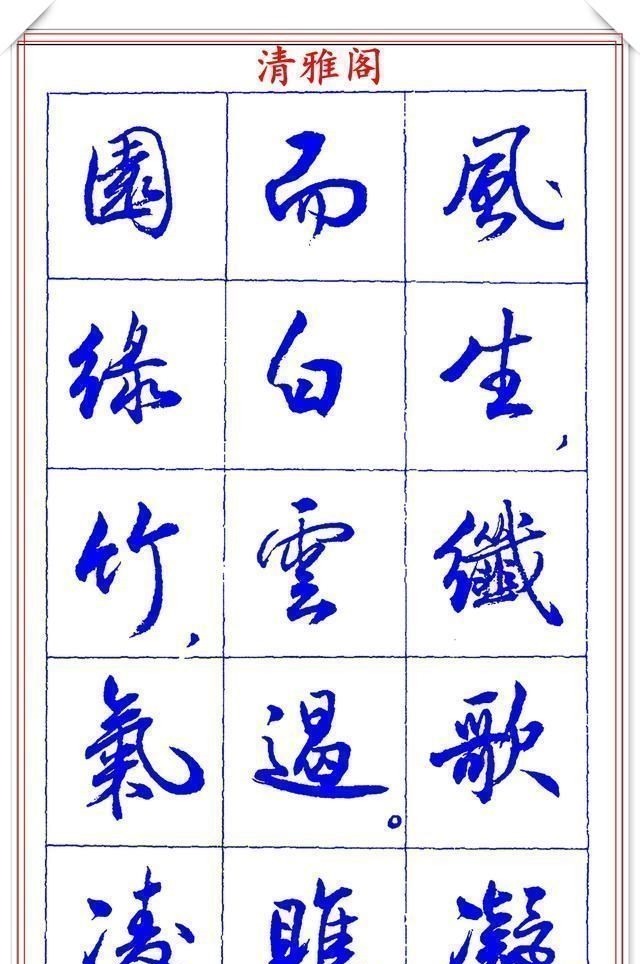 清雅阁
風生,纖歌凝
而白雲遏。睢
園綠竹,氣凌